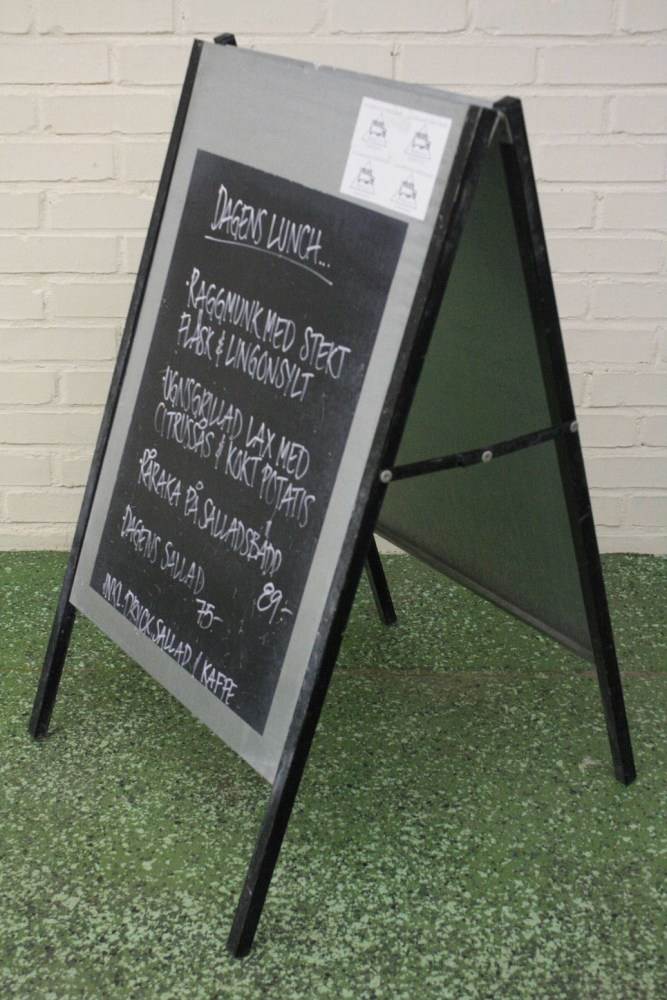 DAGENS LUNCH...
·RAGGMUNK MED STEKT
FLÄSK & LINGONSYLT
·UGNSGRILLAD LAX MED
CITRUSSÅS & KOKT POTATIS
·RÅRAKA PÅ SALLADSBÄDD
DAGENS SALLAD 89:-
75:-
INKL. DRYCK, SALLAD / KAFFE